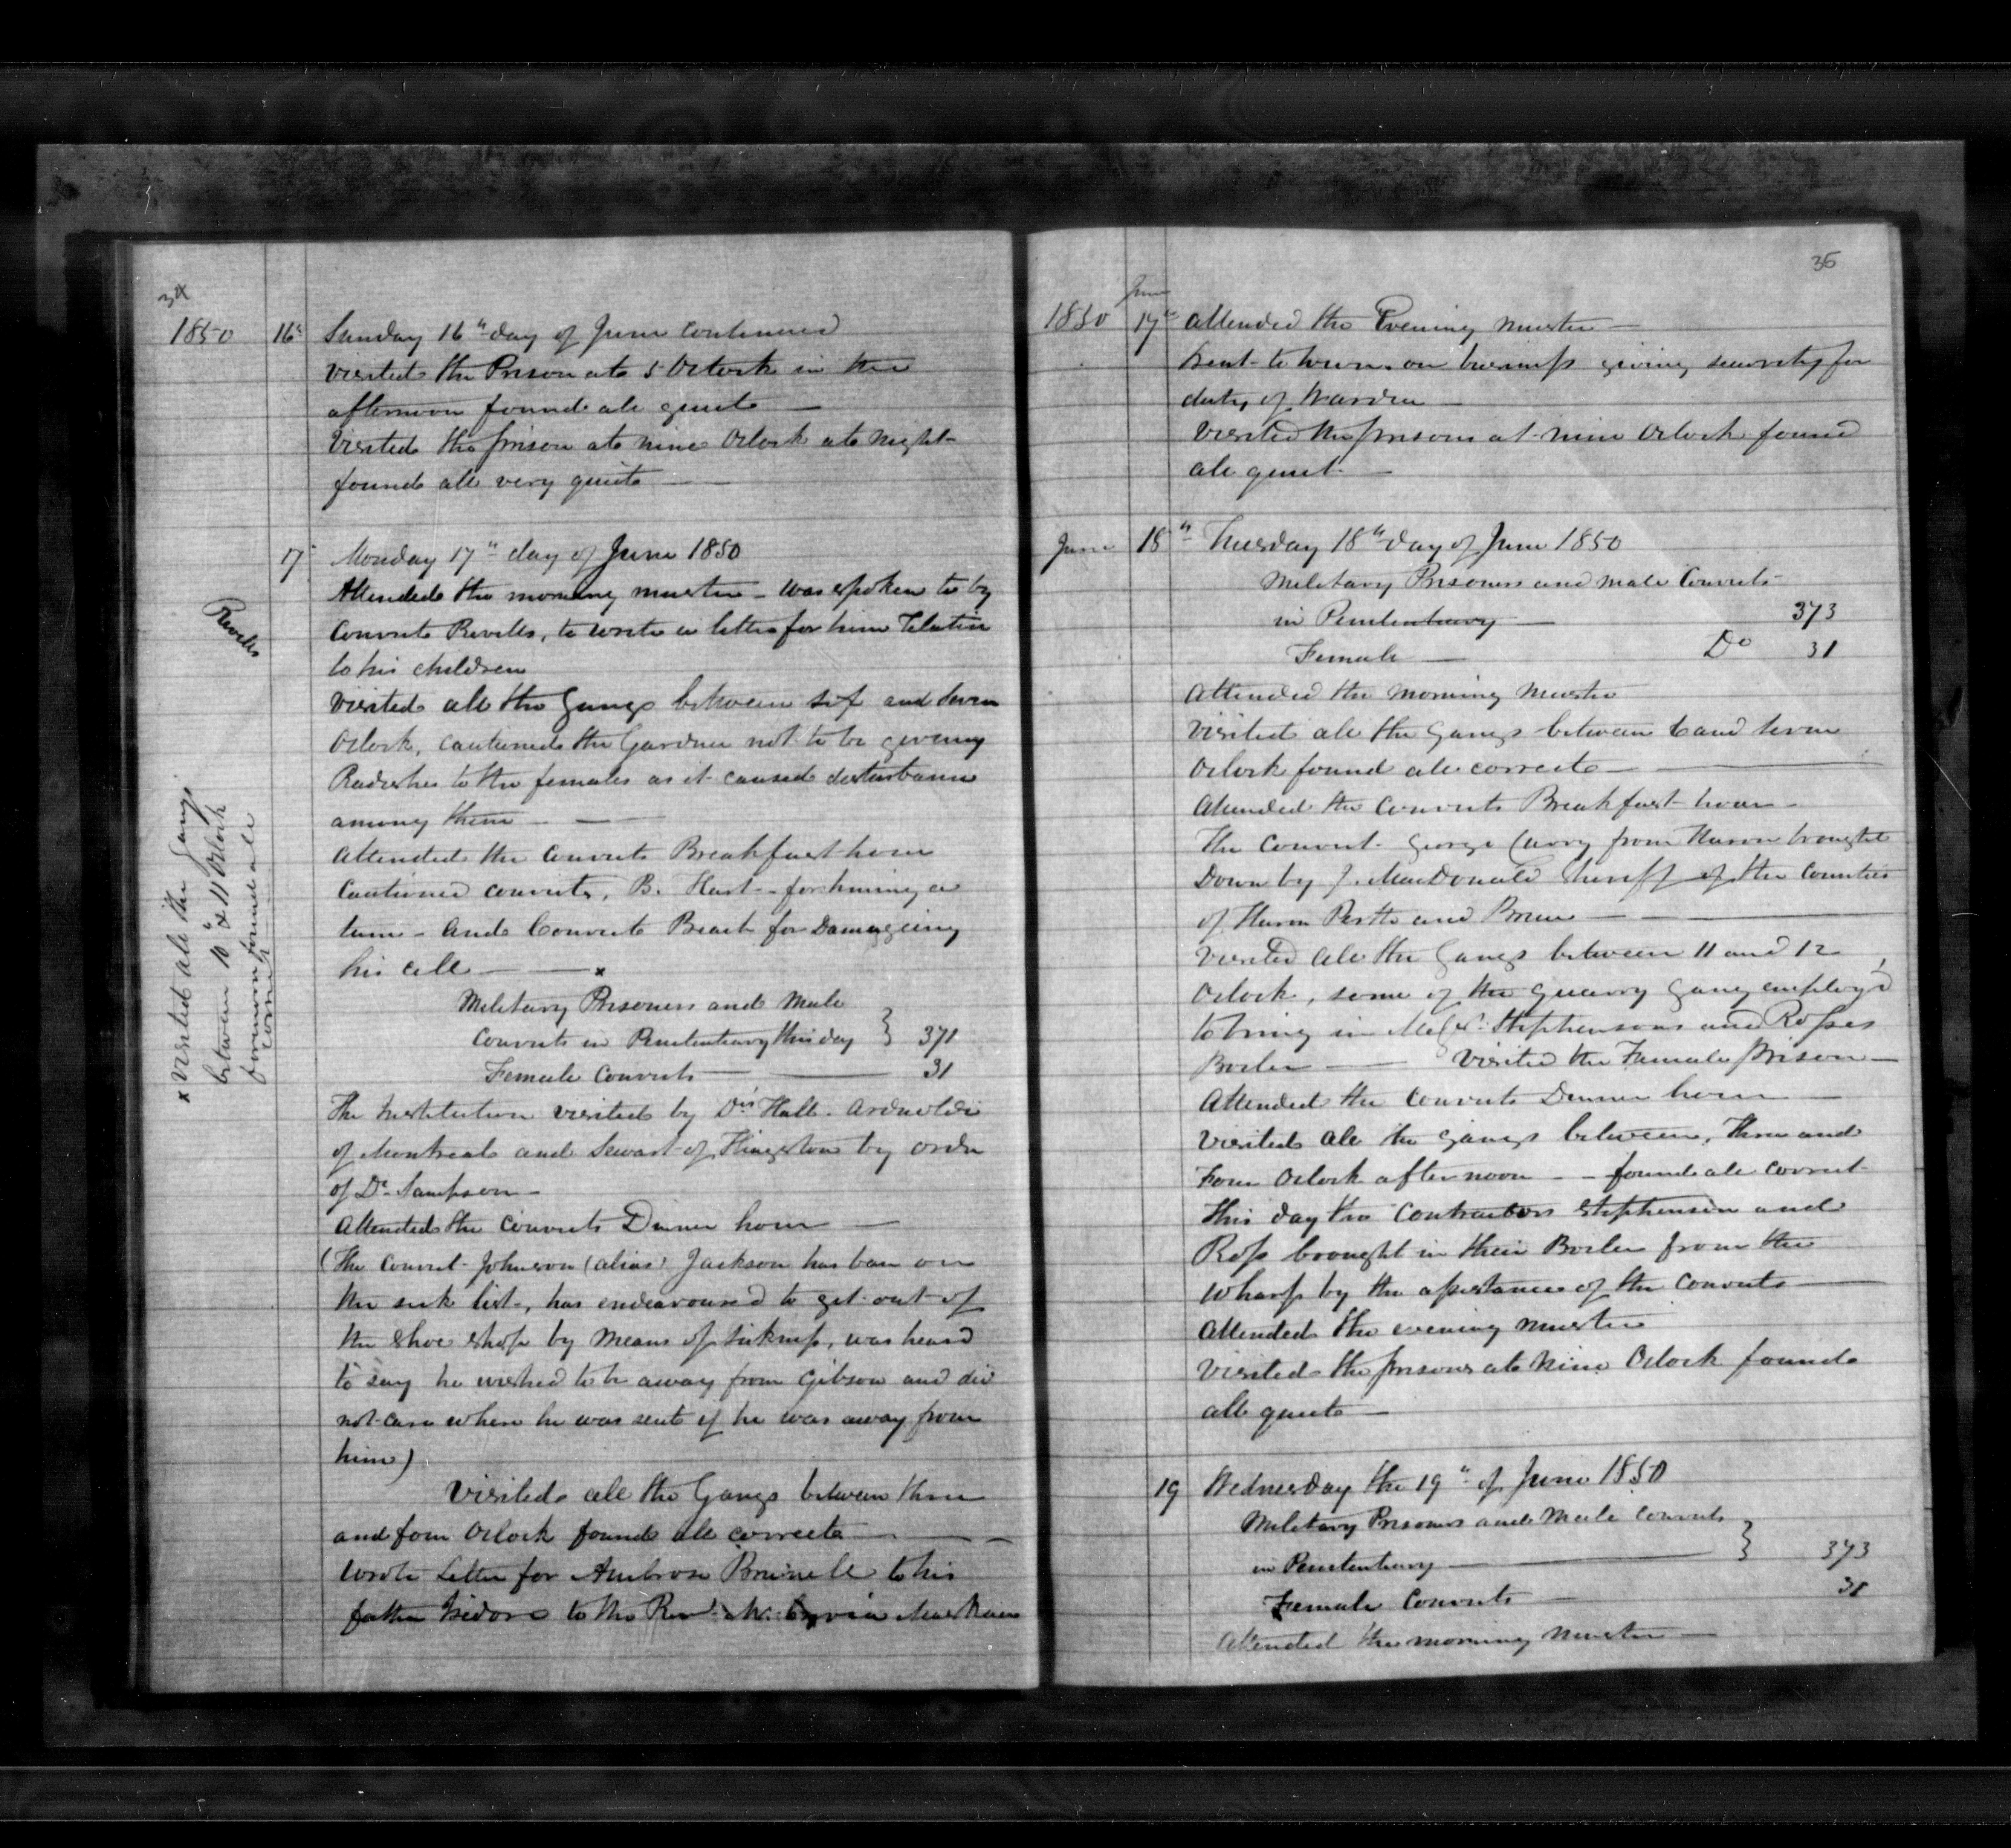 34
1850 16th Sunday 16th day of June Continued
Visited the Prison at 5 Oclock in the
afternoon found all quiet —
Visited the prison at nine Oclock at Night
found all very quiet —
17th Monday 17th day of June 1850
Attended the morning muster – was spoken to by
Revells
Convict Revells, to write a letter for him
to his children
Visited all the Gangs between six and seven
Oclock, cautioned the Gardner not to be giveing
Radishes to the females as it caused disturbance
among them —
Attended the Convicts Breakfast hour
Cautioned convict, B. Hart – for
and Convict for Damageing
his cell — x
x Visited all the Gangs
between 10 & 11 Oclock
forenoon found all
correct
Military Prisoners and Male
Convicts in Penitentiary this day } 371
Female Convicts — 31
The Institution visited by Drs Hall. Arnoldi
of Montreal and Sewart of Kingston by order
of Dr Sampson –
Attended the Convicts Dinner hour —
(The Convict Johnson (alias) Jackson has been on
the sick list, has endeavoured to get out of
the shoe shop by means of sickness, was heard
to say he wished to be away from Gibson and did
not care where he was sent if he was away from
him)
Visited all the Gangs between three
and four Oclock found all correct —
Wrote Letter for Ambrose Brunelle to his
father Isidore to the Revd Mr.
35
June
1850 17th Attended the Evening muster —
Went to town on business giving security for
duty of Warden —
Visited the prisons at nine Oclock found
all quiet —
June 18th Tuesday 18th day of June 1850
Military Prisoners and male Convicts
in Penitentiary — 373
Female — Do 31
Attended the Morning Muster
Visited all the Gangs between 6 and seven
Oclock found all correct —
Attended the Convicts Breakfast hour –
The Convict George Curry from Huron brought
Down by J. MacDonald Sheriff of the Counties
of Huron Perth and Bruce —
Visited all the Gangs between 11 and 12
Oclock, some of the Quarry Gang employ'd
to bring in Messrs Stephensons and Rosses
Boiler — Visited the Female prison —
Attended the Convicts Dinner hour —
Visited all the Gangs between, Three and
Four Oclock afternoon – – found all correct
This day the Contractors Stephenson and
Ross brought in their Boiler from the
wharf by the assistance of the Convicts —
Attended the evening muster
Visited the prisons at Nine Oclock found
all quiet —
19 Wednesday the 19th of June 1850
Military Prisoners and Male Convicts
in Penitentiary — } 373
Female Convicts — 31
Attended the morning Muster —